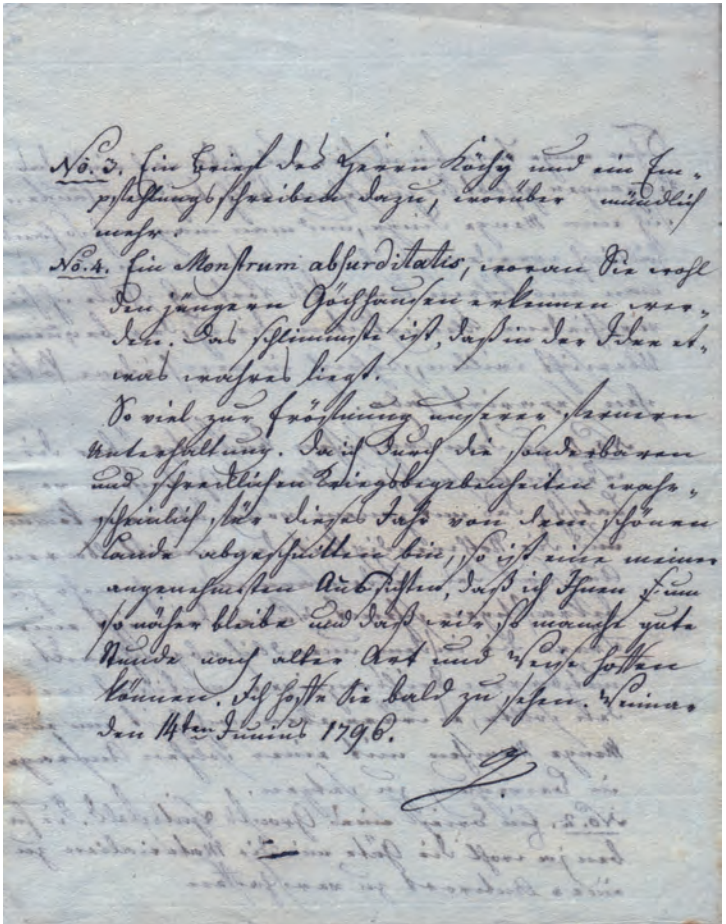 No. 3. Ein Brief des Herrn Köchy und ein Em-
pfehlungsschreiben dazu, worüber mündlich
mehr.
No. 4. Ein Monstrum absurditatis, woran Sie wohl
den jüngern Göchhausen erkennen wer-
den. Das schlimmste ist, daß in der Idee et-
was wahres liegt.
So viel zur Eröffnung unserer fernern
Unterhaltung. Da ich durch die sonderbaren
und schrecklichen Kriegsbegebenheiten wahr-
scheinlich für dieses Jahr von dem schönen
Lande abgeschnitten bin, so ist eine meiner
angenehmsten Aussichten, daß ich Ihnen um
so näher bleibe und daß wir so manche gute
Stunde nach alter Art und Weise hoffen
können. Ich hoffe Sie bald zu sehen. Weimar
den 14ten Junius 1796.
G